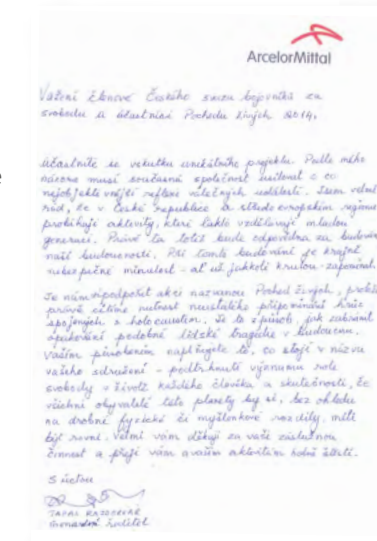 ArcelorMittal
Vážení členové Českého svazu bojovníků za
svobodu a účastníci Pochodu živých 2014,
účastníte se vskutku unikátního projektu. Podle mého
názoru musí současná společnost usilovat o co
nejobjektivnější reflexi válečných událostí. Jsem velmi
rád, že v České republice a středoevropském regionu
probíhají aktivity, které takto vzdělávají mladou
generaci. Právě ta totiž bude odpovědna za budování
naší budoucnosti. Při tomto budování je krajně
nebezpečné minulost - ať už jakkoli krutou - zapomínat.
Je nám podpořit akci nazvanou Pochod živých, protože
právě cítíme nutnost neustálého připomínání hrůz
spojených s holocaustem. Je to způsob, jak zabránit
opakování podobné lidské tragédie v budoucnu.
Vaším působením naplňujete to, co stojí v názvu
vašeho sdružení - podtrhnutí významu role
svobody v životě každého člověka a skutečnosti, že
všichni obyvatelé této planety by si, bez ohledu
na drobné fyzické či myšlenkové rozdíly, měli
být rovni. Velmi vám děkuji za vaše záslužnou
činnost a přeji vám a vašim aktivitám hodně štěstí.
S úctou
ředitel